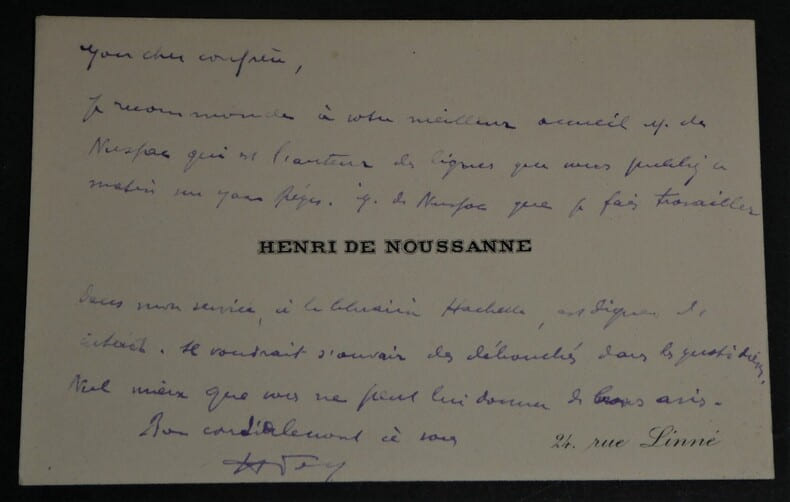 Mon cher confrère,
Je recommande à votre meilleur accueil M. de
qui est l'auteur des lignes que vous publiez ce
matin sur M. de que je fais travailler
HENRI DE NOUSSANNE
Dans mon service, à la librairie Hachette, est digne
intérêt. Il voudrait s'ouvrir des débouchés dans les quotidiens,
Nul mieux que vous ne peut lui donner de bons avis.
Bien cordialement à vous
24, rue Linné